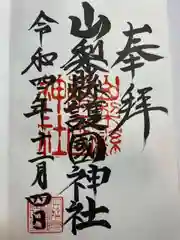 奉拝
山梨縣護國神社
令和四年十一月四日